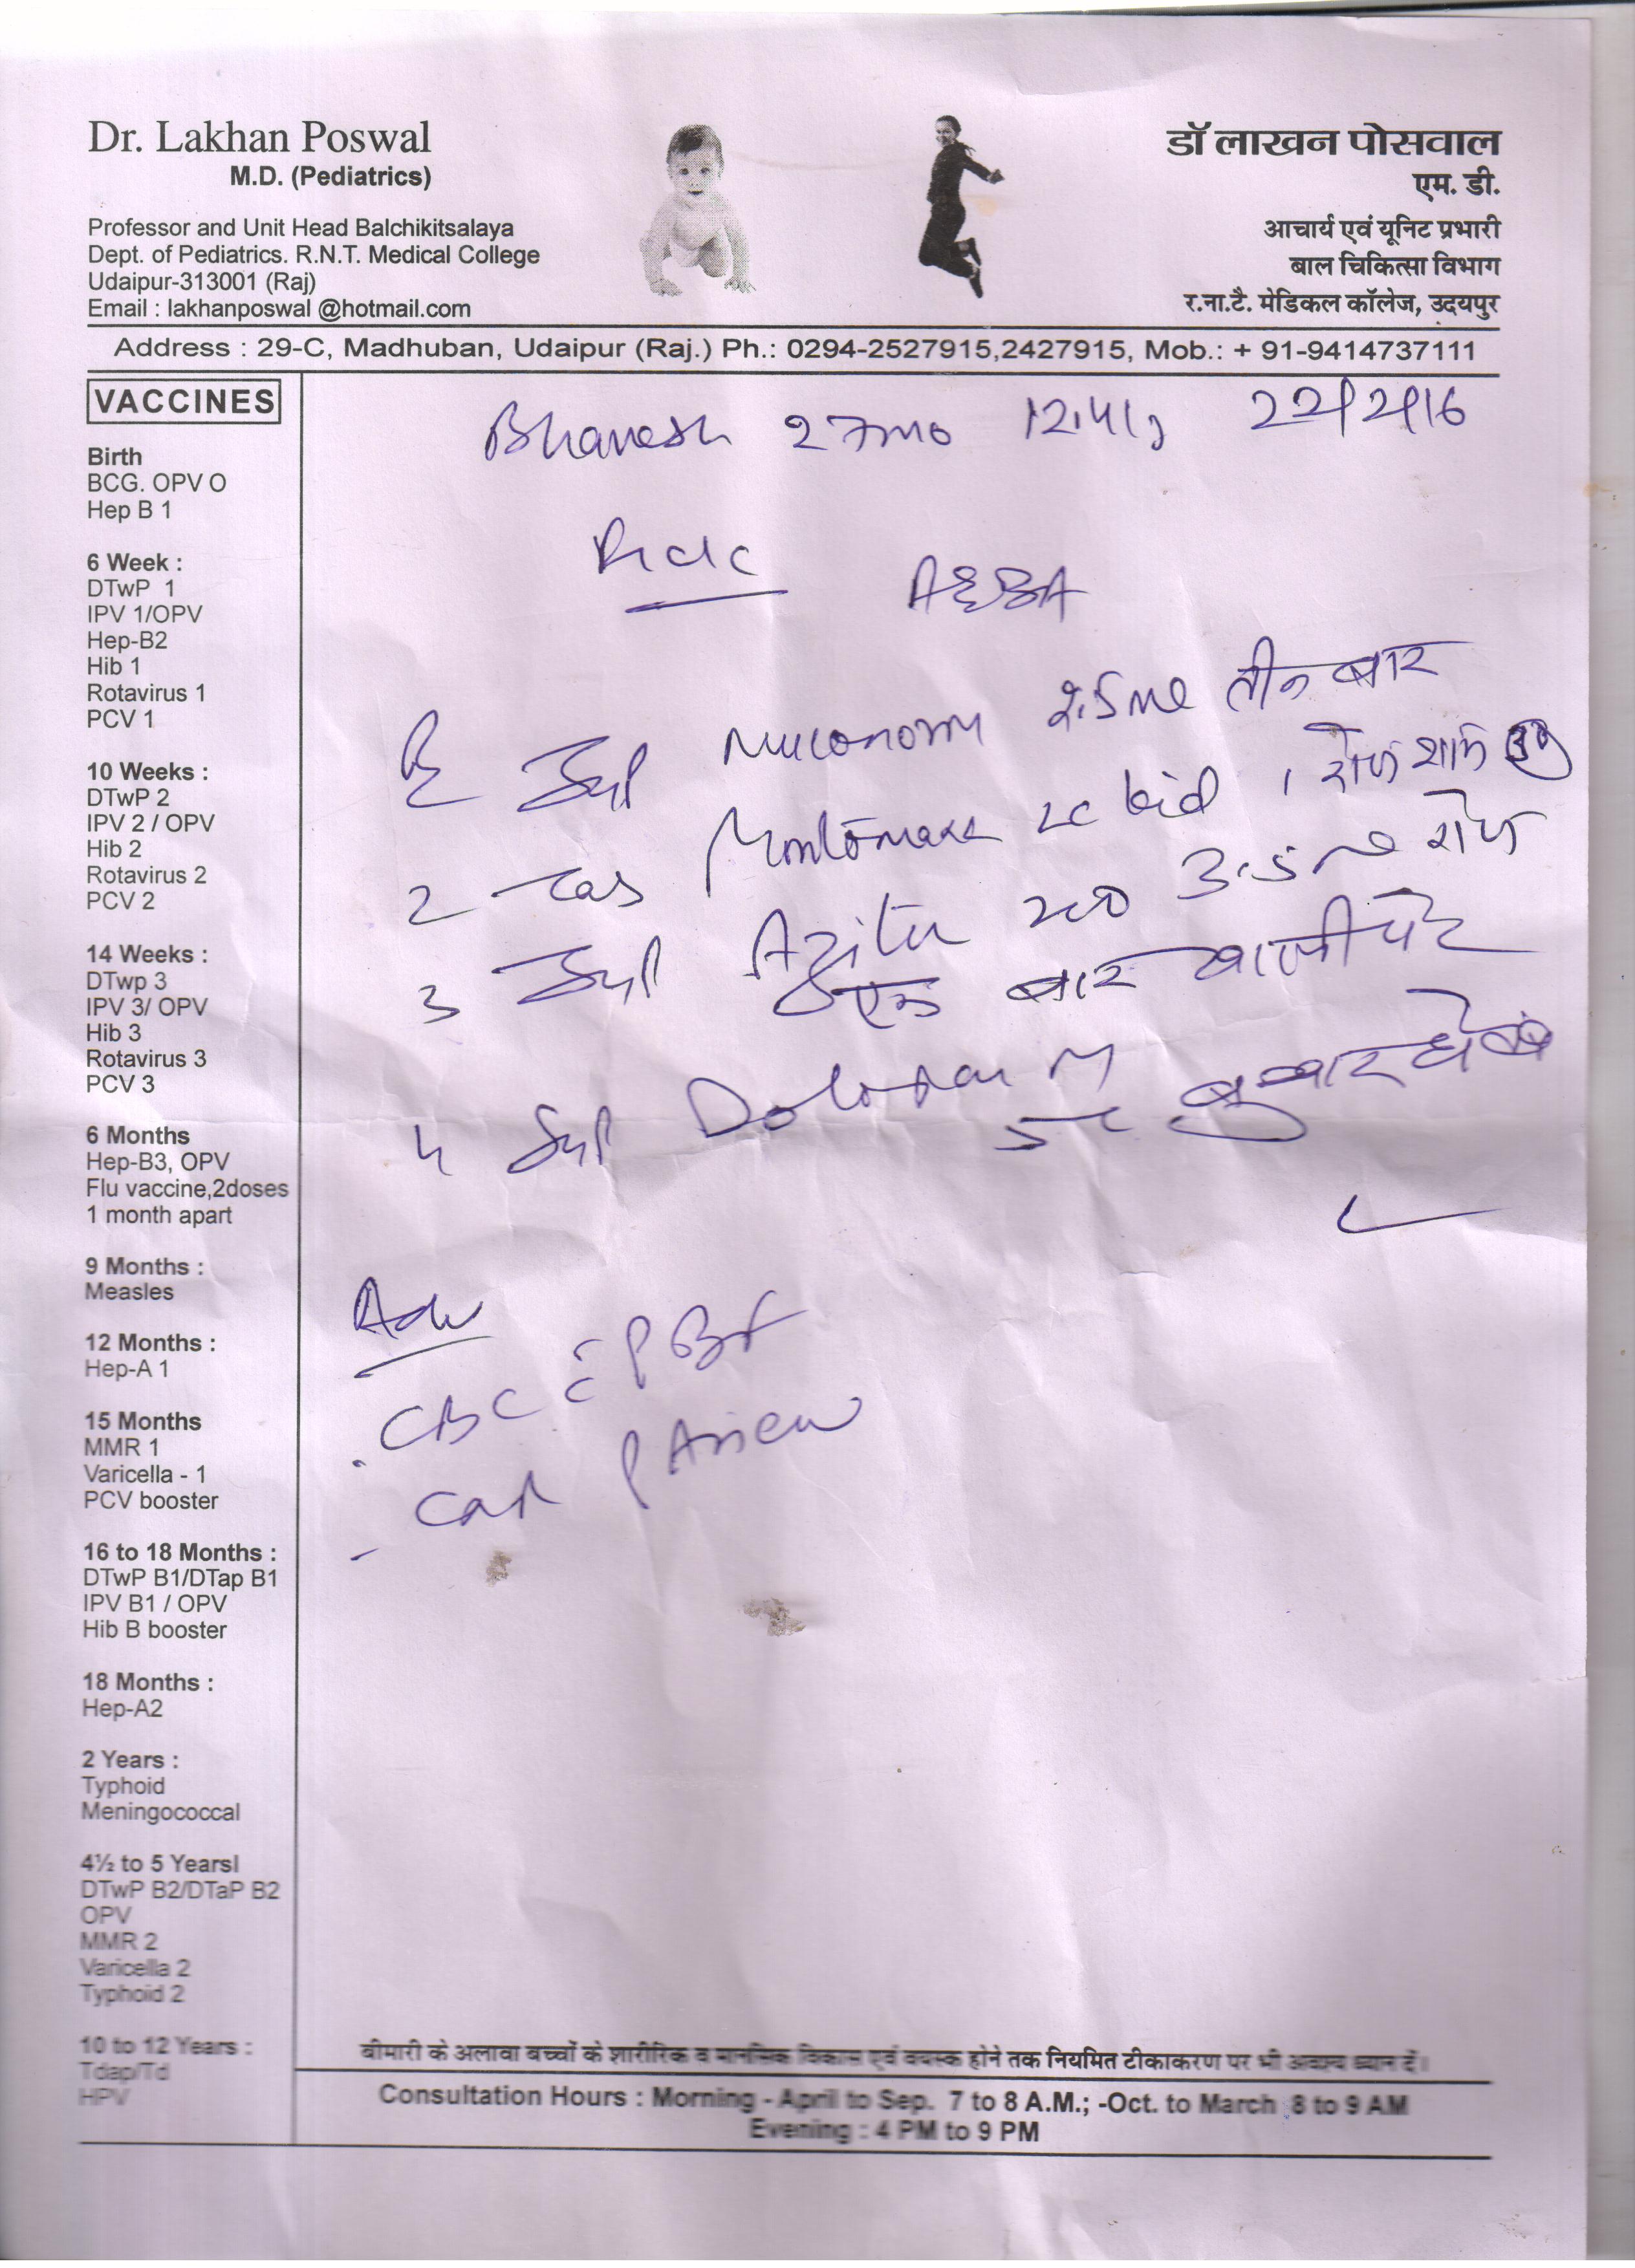 Dr. Lakhan Poswal
M.D. (Pediatrics)
Professor and Unit Head Balchikitsalaya
Dept. of Pediatrics. R.N.T. Medical College
Udaipur-313001 (Raj)
Email : lakhanposwal @hotmail.com
डॉ लाखन पोसवाल
एम. डी.
आचार्य एवं यूनिट प्रभारी
बाल चिकित्सा विभाग
र.ना.टै. मेडिकल कॉलेज, उदयपुर
Address : 29-C, Madhuban, Udaipur (Raj.) Ph.: 0294-2527915,2427915, Mob.: + 91-9414737111
VACCINES
Birth
BCG. OPV O
Hep B 1
6 Week :
DTwP 1
IPV 1/OPV
Hep-B2
Hib 1
Rotavirus 1
PCV 1
10 Weeks :
DTwP 2
IPV 2 / OPV
Hib 2
Rotavirus 2
PCV 2
14 Weeks :
DTwp 3
IPV 3/ OPV
Hib 3
Rotavirus 3
PCV 3
6 Months
Hep-B3, OPV
Flu vaccine,2doses
1 month apart
9 Months :
Measles
12 Months :
Hep-A 1
15 Months
MMR 1
Varicella - 1
PCV booster
16 to 18 Months :
DTwP B1/DTap B1
IPV B1 / OPV
Hib B booster
18 Months :
Hep-A2
2 Years :
Typhoid
Meningococcal
4½ to 5 Yearsl
DTwP B2/DTaP B2
OPV
MMR 2
Varicella 2
Typhoid 2
10 to 12 Years :
Tdap/Td
HPV
Bhavesh 27mo 22/2/16
Syp तीन बार
2 bid रोज शाम
3 Syp 200 3.5 ml रोज
एक बार खाली पेट
4 Syp बुखार हो तब
Adv
. CBC c̄ PBF
-
बीमारी के अलावा बच्चों के शारीरिक व मानसिक विकास एवं वयस्क होने तक नियमित टीकाकरण पर भी अवश्य ध्यान दें।
Consultation Hours : Morning - April to Sep. 7 to 8 A.M.; -Oct. to March 8 to 9 AM
Evening : 4 PM to 9 PM